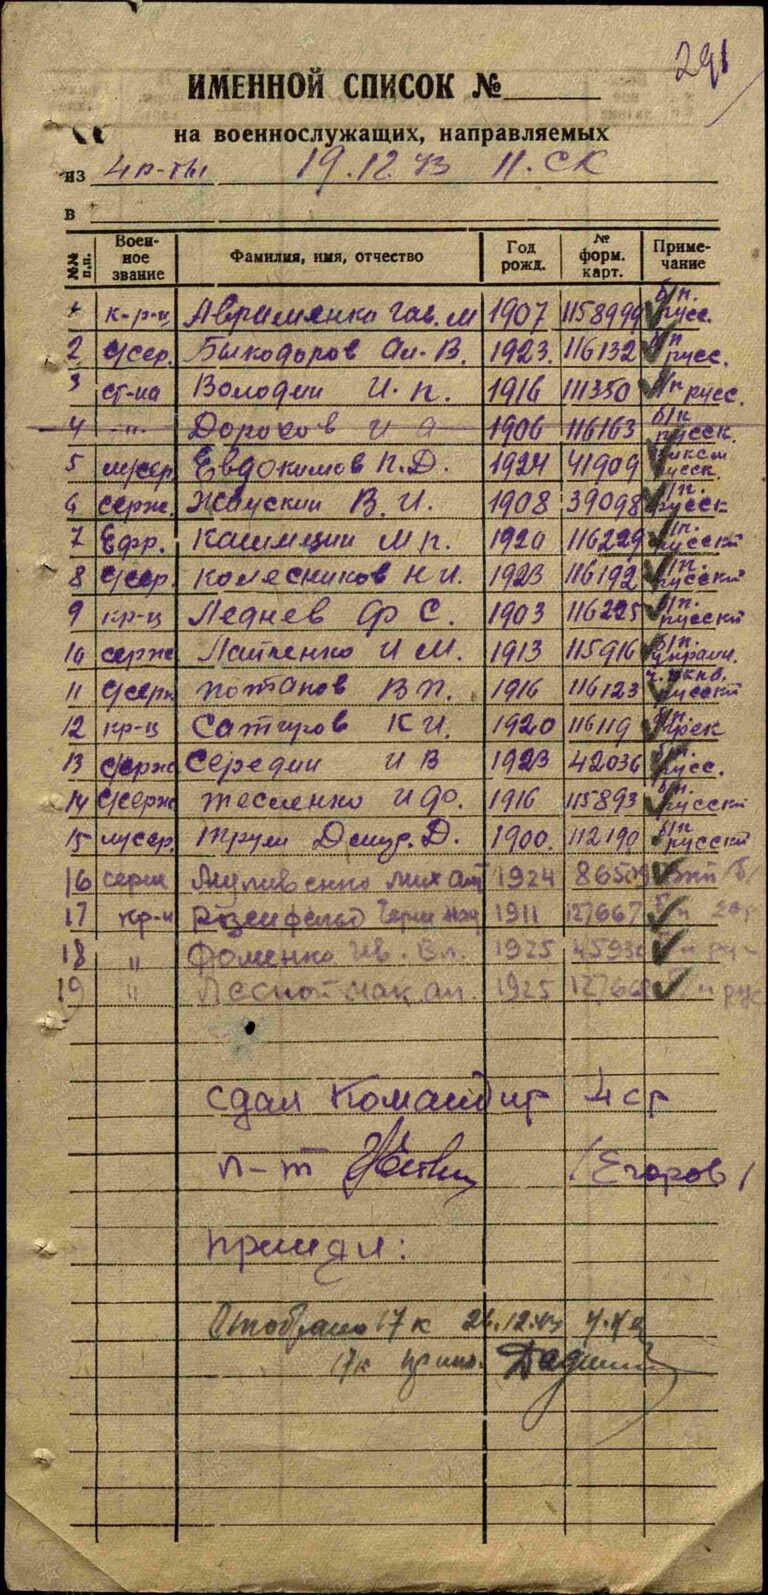 291
ИМЕННОЙ СПИСОК №
на военнослужащих, направляемых
из 4 р-ты 19.12.43 11.СК
в
№№ п.п. Воен-ное звание Фамилия, имя, отчество Год рожд. № форм. карт. Приме-чание
к-р-ц Авраменко Гав. М 1907 115899 б/п. русс.
2 с/сер. Быкодоров Ал. В. 1923. 116132 б/п русс.
3 ст-на Володин И. П. 1916 111350 б/п русс.
4 -"- Дорохов И А 1906 116163 б/п русск.
5 м/сер Евдокимов П. Д. 1924 41909 русск
6 серж. В. И. 1908 39098 б/п. русск
7 Ефр. М П. 1920 116229 б/п. русский
8 с/сер. Колесников Н И. 1923 116192 б/п. русский
9 кр-ц Леднев Ф С. 1903 116225 б/п. русский
10 серж И М. 1913 115916 б/п.
11 с/серж Потапов В П. 1916 116123 русский
12 кр-ц К И. 1920 116119 б/п.
13 с/серж Середин И В 1923 42036 б/п. русс.
14 с/серж И Ф. 1916 115893 б/п. русский
15 м/сер. Д. 1900. 112190 б/п русский
16 серж 1924 86509
17 кр-ц Розенфельд 1911 127667 б п
18 " Фоменко Ив. Вл. 1925 45930 п
19 " Лесной 1925 127668 п рус
сдал Командир 4 ср
л-т /Егоров/
принял:
Отобрано 17 к 26.12.43
17 к